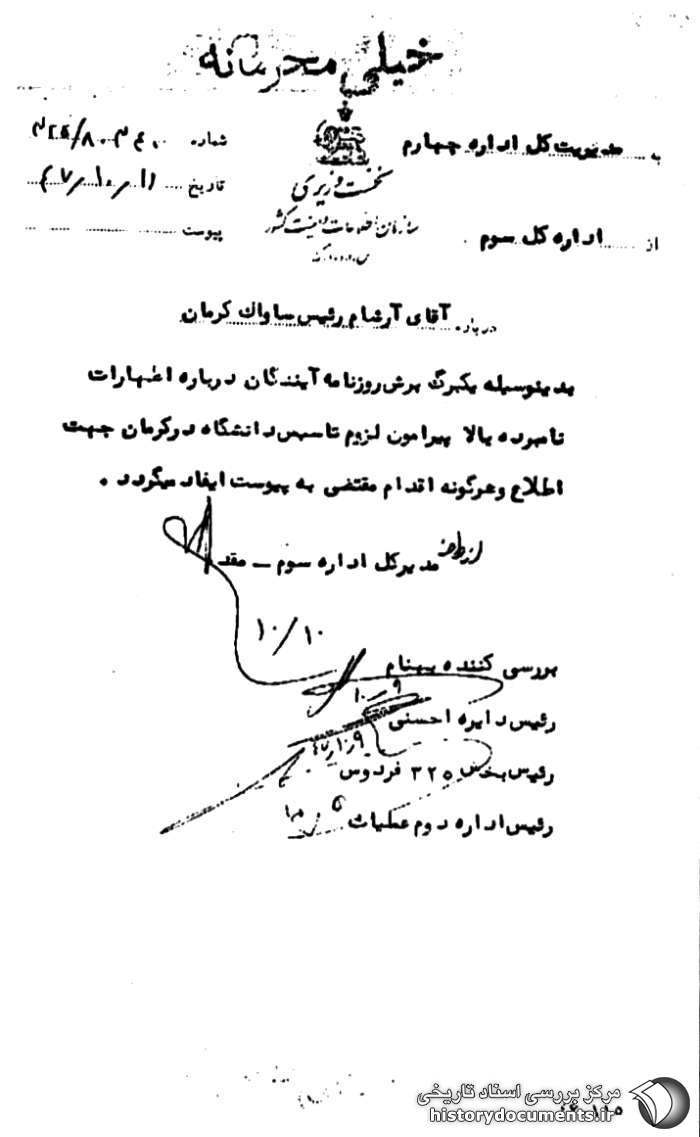 خیلی محرمانه
به مدیریت کل اداره چهارم
از اداره کل سوم
نخست وزیری
سازمان اطلاعات و امنیت کشور
س.ا.و.ا.ک
شماره
تاریخ
پیوست
درباره آقای آرشام رئیس ساواک کرمان
بدینوسیله یکبرگ برش روزنامه آیندگان درباره اظهارات
نامبرده بالا پیرامون لزوم تاسیس دانشگاه در کرمان جهت
اطلاع و هرگونه اقدام مقتضی به پیوست ایفاد میگردد .
از طرف مدیرکل اداره سوم ـ مقدم
۱۰/۱۰
بررسی کننده بهنام
رئیس دایره احسنی
رئیس بخش ۳۲۵ فردوس
رئیس اداره دوم عملیات
مرکز بررسی اسناد تاریخی
historydocuments.ir